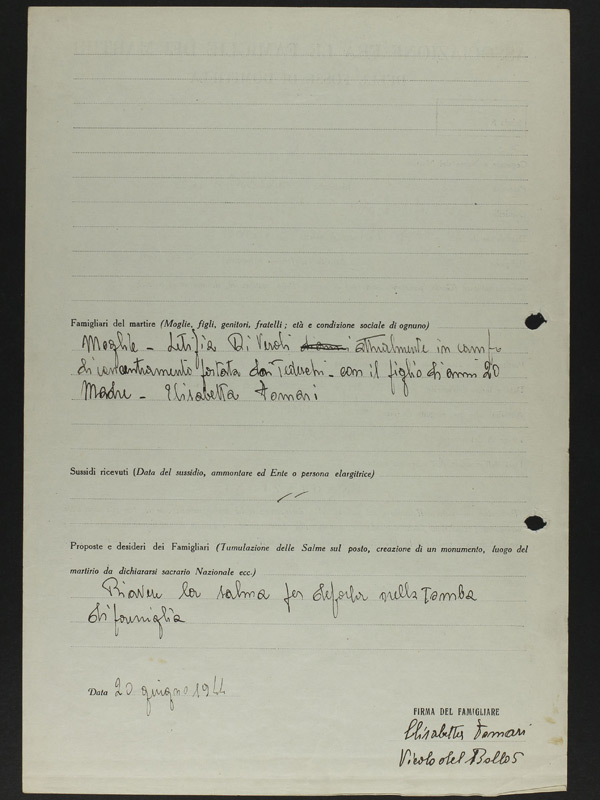 Famigliari del martire (Moglie, figli, genitori, fratelli ; età e condizione sociale di ognuno)
Moglie - Letizia Di Veroli attualmente in campo
di concentramento portata dai Tedeschi - con il figlio di anni 20
Madre - Elisabetta
Sussidi ricevuti (Data del sussidio, ammontare ed Ente o persona elargitrice)
Proposte e desideri dei Famigliari (Tumulazione delle Salme sul posto, creazione di un monumento, luogo del
martirio da dichiararsi sacrario Nazionale ecc.)
Riavere la salma per deporla nella Tomba
di famiglia
Data 20 giugno 1944
FIRMA DEL FAMIGLIARE
Elisabetta
Vicolo del Bollo 5